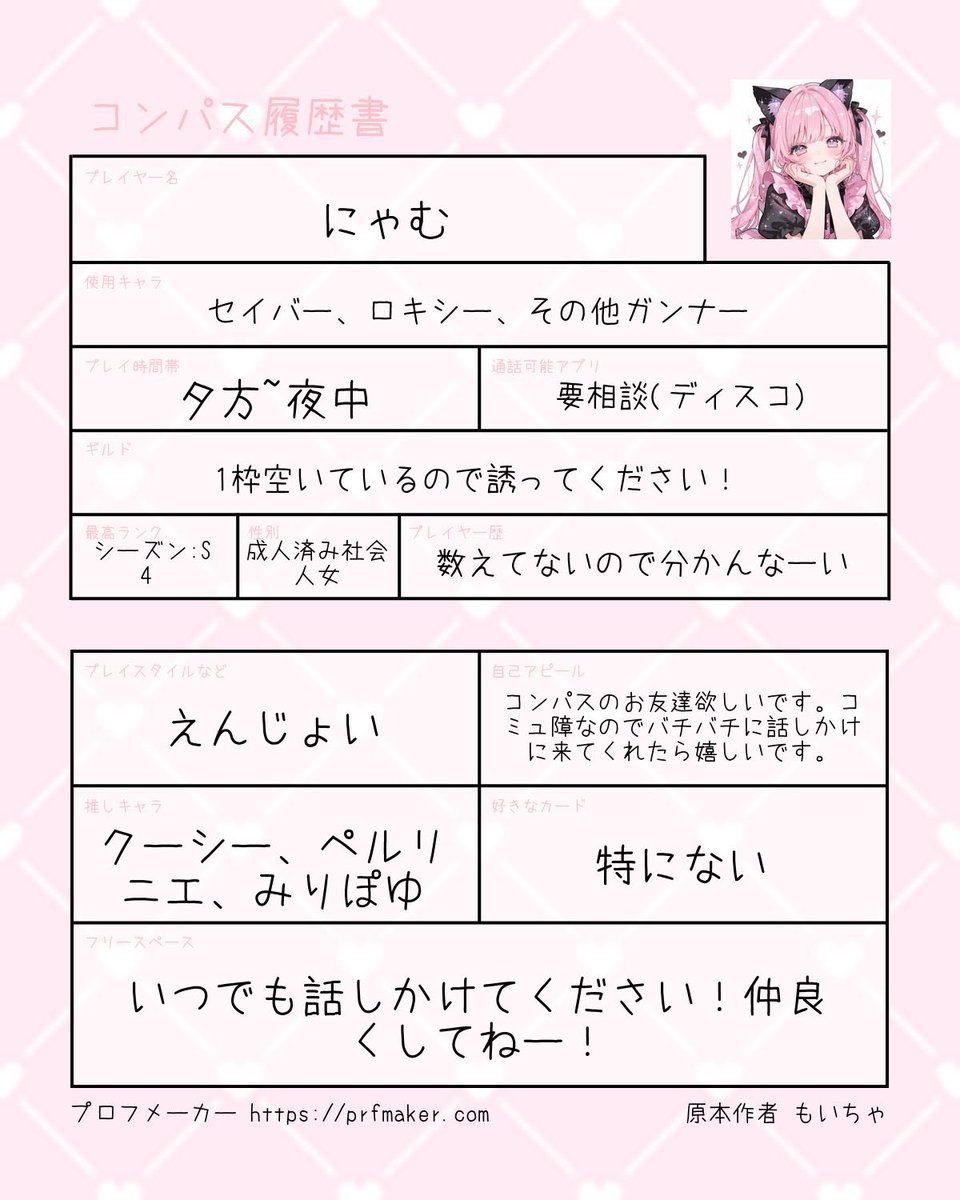 コンパス履歴書
プレイヤー名
にゃむ
使用キャラ
セイバー、ロキシー、その他ガンナー
プレイ時間帯
夕方~夜中
通話可能アプリ
要相談(ディスコ)
ギルド
1枠空いているので誘ってください！
最高ランク
シーズン:S
4
性別
成人済み社会
人女
プレイヤー歴
数えてないので分かんなーい
プレイスタイルなど
えんじょい
自己アピール
コンパスのお友達欲しいです。コ
ミュ障なのでバチバチに話しかけ
に来てくれたら嬉しいです。
推しキャラ
クーシー、ペルリ
ニエ、みりぽゆ
好きなカード
特にない
フリースペース
いつでも話しかけてください！仲良
くしてねー！
プロフメーカー https://prfmaker.com
原本作者 もいちゃ